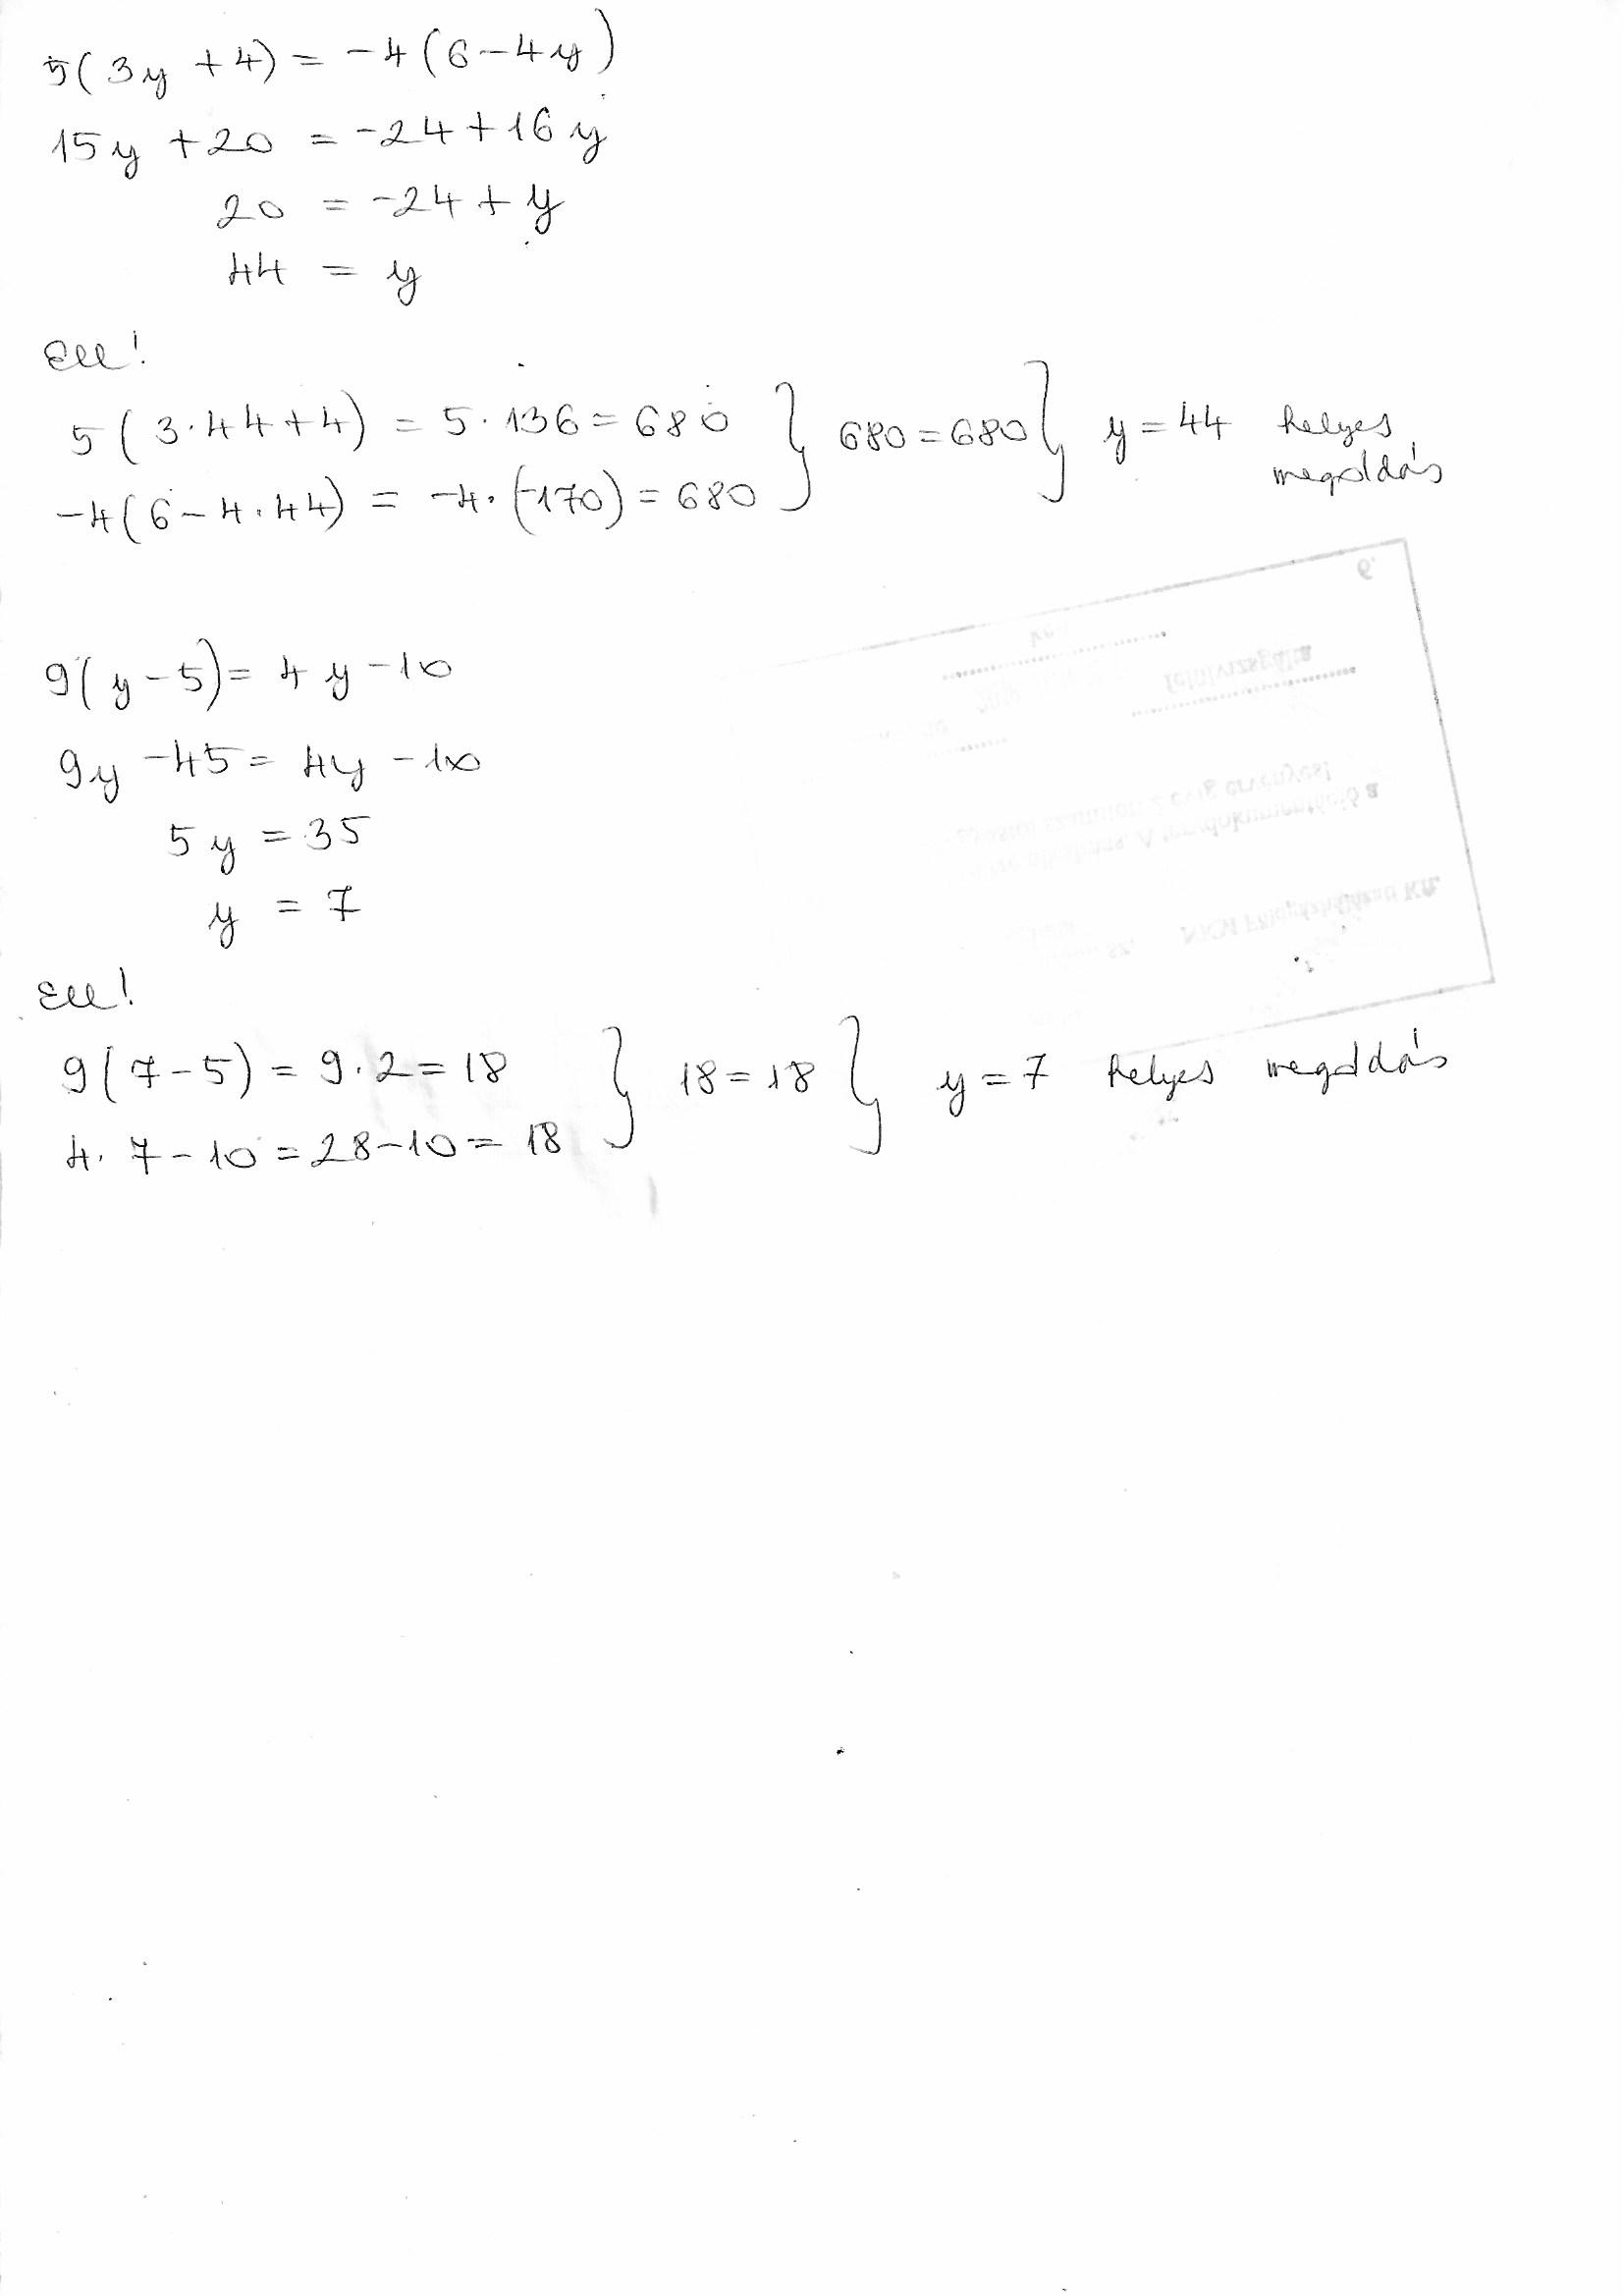 5(3y+4) = -4(6-4y)
15y+20 = -24+16y
20 = -24+y
44 = y
Ell!
5(3·44+4) = 5·136 = 680
-4(6-4·44) = -4·(-170) = 680
680 = 680
y = 44 helyes
megoldás
9(y-5) = 4y-10
9y-45 = 4y-10
5y = 35
y = 7
Ell!
9(7-5) = 9·2 = 18
4·7-10 = 28-10 = 18
18 = 18
y = 7 helyes megoldás
6.
felülvizsgálta